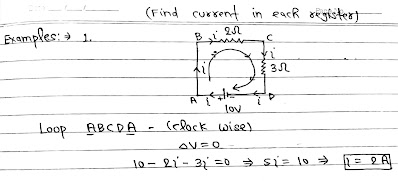 (Find current in each register)
Examples:→ 1.
B i 2Ω C
i i 3Ω
A i +- i D
10V
Loop ABCDA - (clock wise)
ΔV=0
10 - 2i - 3i = 0 ⇒ 5i = 10 ⇒ i = 2A